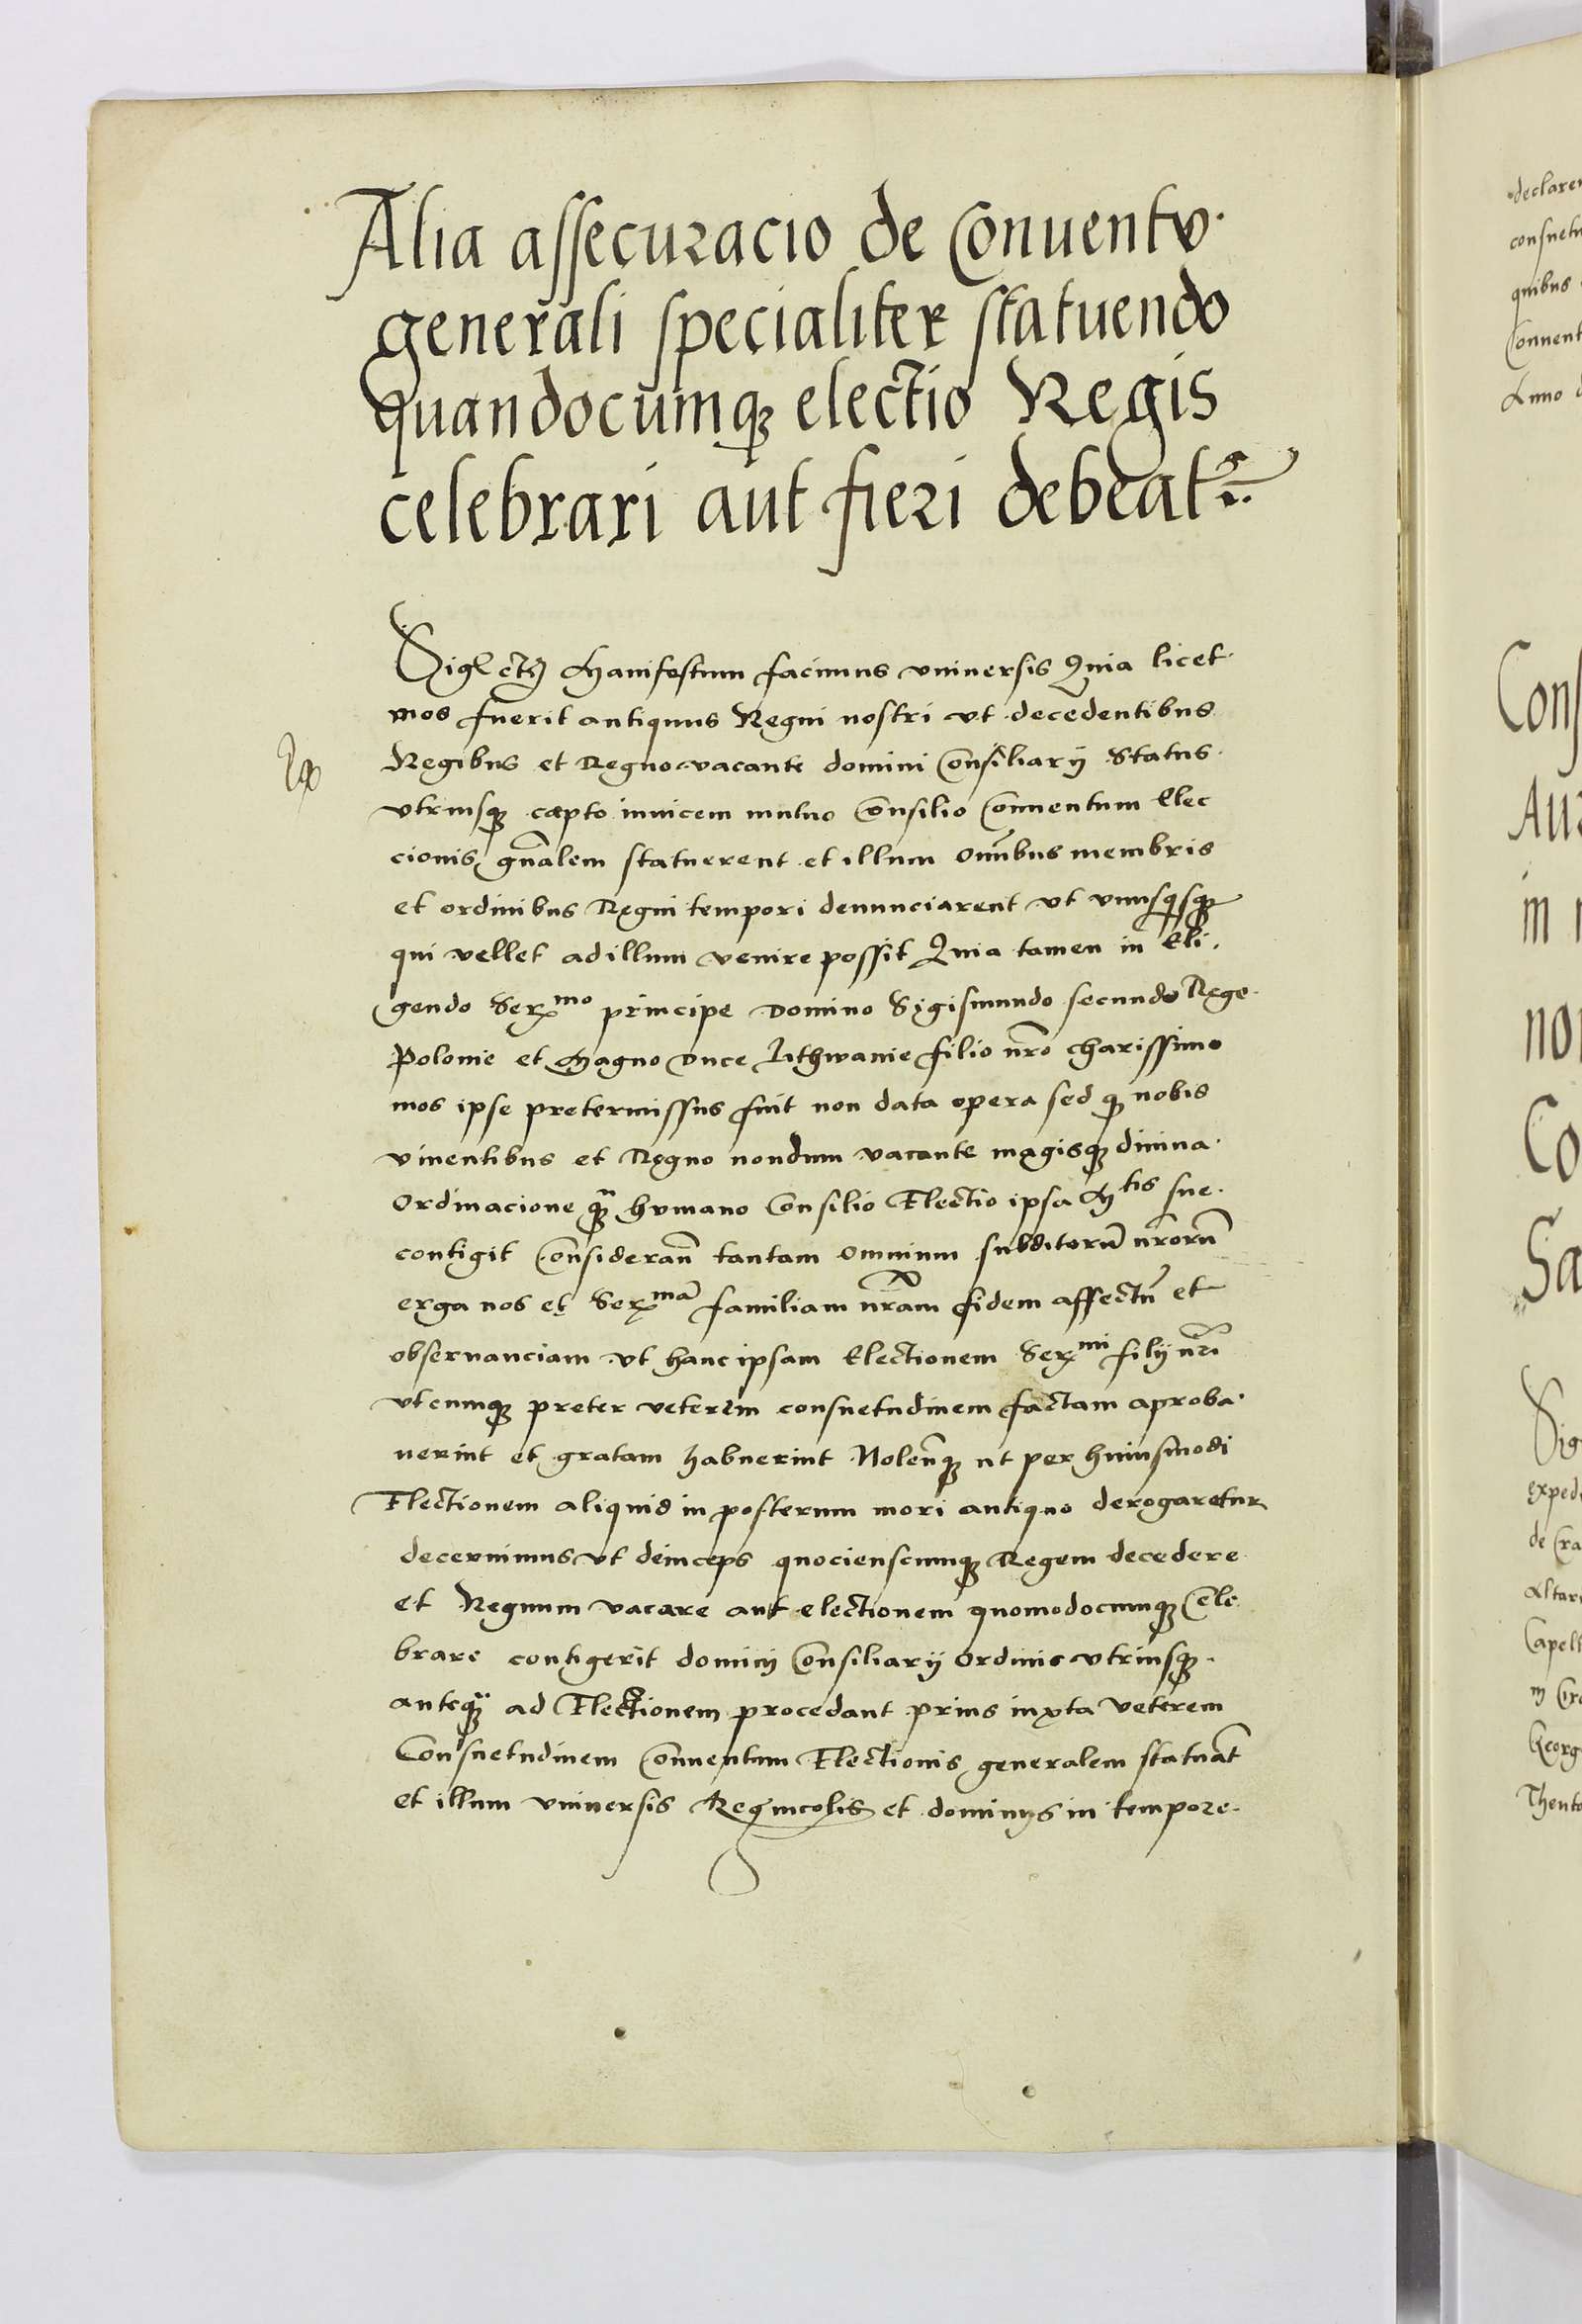 Alia assecuracio de Conuentu
generali specialiter statuendo
quandocumq3 electio Regis
celebrari aut fieri debeat
Sigl etc Manifestum facimus vniuersis Quia licet
mos fuerit antiquus Regni nostri vt decedentibus
Regibus et Regno vacante domini Consiliarij Status
vtriusq3 cœpto inuicem mutuo Consilio Conuentum Elec
cionis gñalem statuerent et illum om̃ibus membris
et ordinibus Regni tempori denunciarent vt vnusqsq3
qui vellet ad illum venire possit Quia tamen in Eli
gendo Serx^mo principe Domino Sigismundo secundo Rege
Polonie et Magno Duce Lithwanie filio nr̃o charissimo
mos ipse pretermissus fuit non data opera sed q3 nobis
viuentibus et Regno nondum vacante magisq3 diuina
Ordinacione q3̃ humano Consilio Electio ipsa M^tis sue
contigit Considerañ tantam omnium subditorũ nr̃orũ
erga nos et Serx^ma familiam nr̃am fidem affectũ et
obseruanciam vt hanc ipsam Electionem Serx^mi filij nr̃i
vtcumq3 preter veterem consuetudinem factam aproba
uerint et gratam habuerint Noleñq3 ut per huiusmodi
Electionem aliquid in posterum mori antiquo derogaretur
decernimus vt deinceps quocienscumq3 Regem decedere
et Regnum vacare aut electionem quomodocumq3 Cele
brare contigerit domini Consiliarij Ordinis vtriusq3
anteq3̃ ad Electionem procedant prius iuxta veterem
Consuetudinem Conuentum Electionis generalem statuãt
et illum vniuersis Regnicolis et dominijs in tempore
declare
consuetu
quibus
Conuent
Anno d
Cons
Au
in
no
Co
Sa
Sig
exped
de Cra
Altar
Capell
Georg